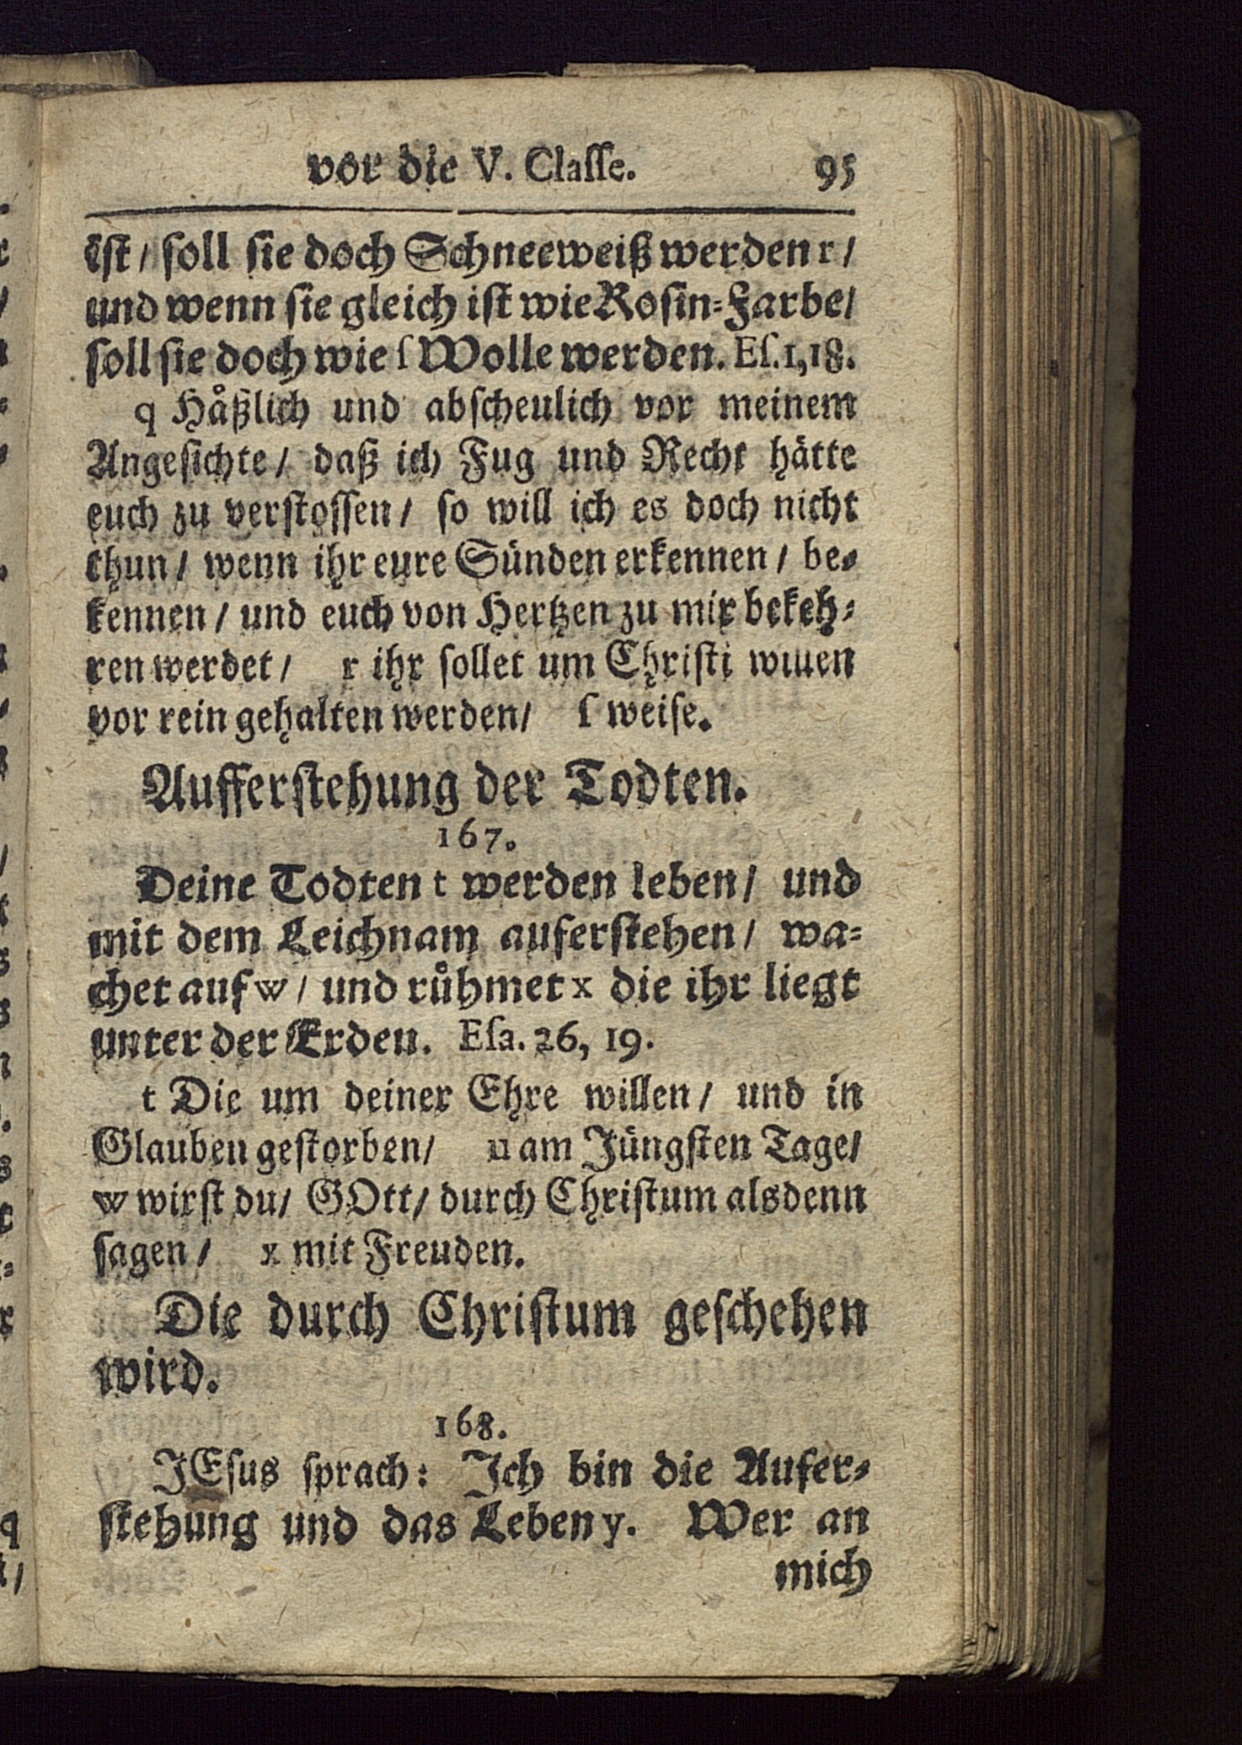 vor die V. Claſſe. 95
iſt / ſoll ſie doch Schneeweiß werden r /
und wenn ſie gleich iſt wie Roſin-Farbe /
ſoll ſie doch wie ſ Wolle werden. Eſ. 1, 18.
q Haͤßlich und abſcheulich vor meinem
Angeſichte / daß ich Fug und Recht haͤtte
euch zu verſtoſſen / ſo will ich es doch nicht
thun / wenn ihr eure Suͤnden erkennen / be-
kennen / und euch von Hertzen zu mir bekeh-
ren werdet / r ihr ſollet um Chriſti willen
vor rein gehalten werden / ſ weiſe.
Aufferſtehung der Todten.
167.
Deine Todten t werden leben / und
mit dem Leichnam auferſtehen / wa-
chet auf w / und ruͤhmet x die ihr liegt
unter der Erden. Eſa. 26, 19.
t Die um deiner Ehre willen / und in
Glauben geſtorben / u am Juͤngſten Tage /
w wirſt du / GOtt / durch Chriſtum alsdenn
ſagen / x mit Freuden.
Die durch Chriſtum geſchehen
wird.
168.
JEſus ſprach: Ich bin die Aufer-
ſtehung und das Leben y. Wer an
mich